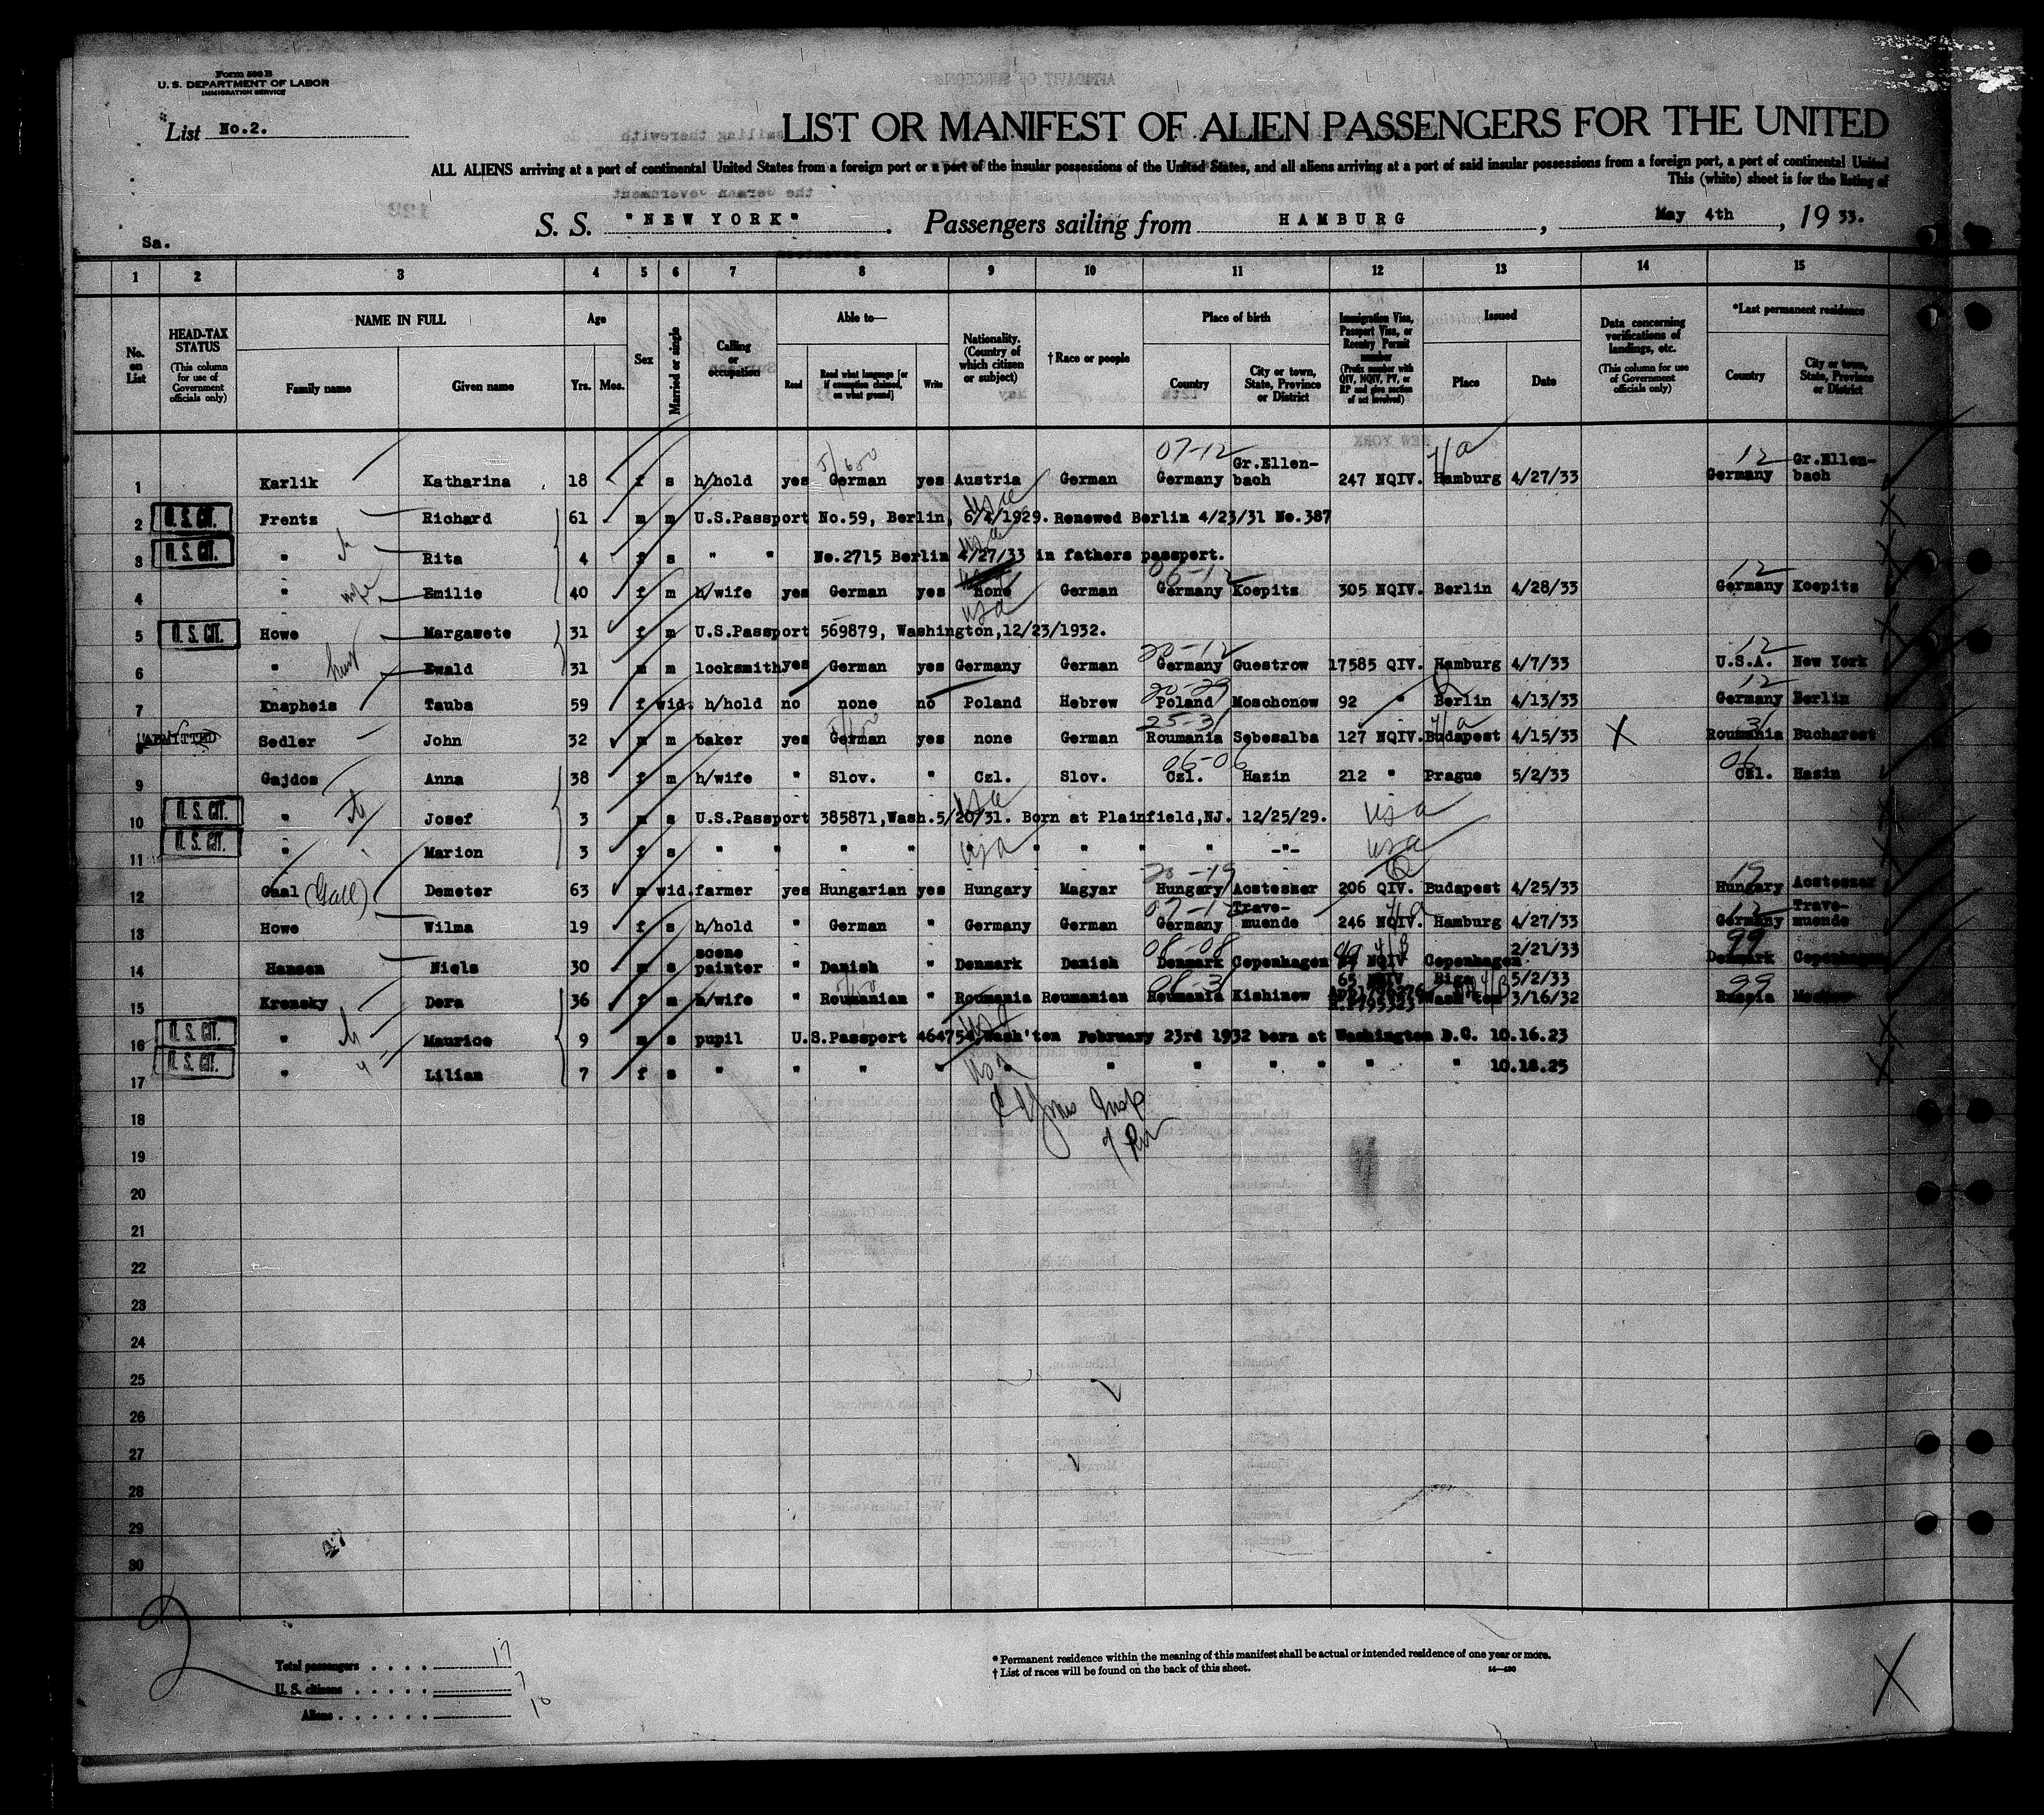 Form 500 B
U. S. DEPARTMENT OF LABOR
IMMIGRATION SERVICE
List No.2.
LIST OR MANIFEST OF ALIEN PASSENGERS FOR THE UNITED
ALL ALIENS arriving at a port of continental United States from a foreign port or a port of the insular possessions of the United States, and all aliens arriving at a port of said insular possessions from a foreign port, a port of continental United
This (white) sheet is for the listing of
Sa.
S. S. "NEW YORK". Passengers sailing from HAMBURG, May 4th, 1933.
1 2 3 4 5 6 7 8 9 10 11 12 13 14 15
No. on List
HEAD-TAX STATUS (This column for use of Government officials only)
NAME IN FULL
Family name Given name
Age Yrs. Mos.
Sex
Married or single
Calling or occupation
Able to—
Read Read what language [or if exemption claimed, on what ground] Write
Nationality. (Country of which citizen or subject)
† Race or people
Place of birth
Country City or town, State, Province or District
Immigration Visa, Passport Visa, or Reentry Permit number (Prefix number with QIV, NQIV, PV, or RP and give section of act involved)
Issued
Place Date
Data concerning verifications of landings, etc. (This column for use of Government officials only)
*Last permanent residence
Country City or town, State, Province or District
1 Karlik Katharina 18 f s h/hold yes German yes Austria German 07-12 Germany Gr.Ellenbach 247 NQIV. Hamburg 4/27/33 12 Germany Gr.Ellenbach
2 U.S. CIT. Frentz Richard 61 m m U.S.Passport No.59, Berlin, 6/4/1929. Renewed Berlin 4/23/31 No.387 usa
3 U.S. CIT. " Rita 4 f s " " No.2715 Berlin 4/27/33 in fathers passport. usa
4 " wife Emilie 40 f m h/wife yes German yes none German Germany Koepitz 305 NQIV. Berlin 4/28/33 12 Germany Koepitz
5 U.S. CIT. Howe Margawete 31 f m U.S.Passport 569879, Washington,12/23/1932. usa
6 " Ewald 31 m m locksmith yes German yes Germany German 20-12 Germany Guestrow 17585 QIV. Hamburg 4/7/33 12 U.S.A. New York
7 Knapheis Tauba 59 f wid. h/hold no none no Poland Hebrew 20-29 Poland Moschonow 92 " Berlin 4/13/33 12 Germany Berlin
8 ADMITTED Sedler John 32 m m baker yes German yes none German 25-31 Roumania Sebesalba 127 NQIV. Budapest 4/15/33 X 31 Roumania Bucharest
9 Gajdos Anna 38 f m h/wife " Slov. " Czl. Slov. 06-06 Czl. Hazin 212 " Prague 5/2/33 06 Czl. Hazin
10 U.S. CIT. " Josef 3 m s U.S.Passport 385871,Wash.5/20/31. Born at Plainfield,NJ. 12/25/29. usa usa
11 U.S. CIT. " Marion 3 f s " " " " " " " " -"- usa usa
12 Gaal (Gall) Demeter 63 m wid. farmer yes Hungarian yes Hungary Magyar 20-19 Hungary Acsteszer 206 QIV. Budapest 4/25/33 19 Hungary Acsteszer
13 Howe Wilma 19 f s h/hold " German " Germany German 07-12 Germany Travemuende 246 NQIV. Hamburg 4/27/33 12 Germany Travemuende
14 Hansen Niels 30 m s scene painter " Danish " Denmark Danish 08-08 Denmark Copenhagen NQIV Copenhagen 2/21/33 99 Denmark Copenhagen
15 Krensky Dora 36 f m h/wife " Roumanian " Roumania Roumanian 08-31 Roumania Kishinew 65 NQIV Riga 5/2/33 Wash'ton 3/16/32 99 Russia Moscow
16 U.S. CIT. " Maurice 9 m s pupil U.S.Passport 464754,Wash'ton February 23rd 1932 born at Washington D.C. 10.16.23 usa
17 U.S. CIT. " Lilian 7 f s " " " " " " " " " " 10.18.25 usa
18
19
20
21
22
23
24
25
26
27
28
29
30
Total passengers . . . . 17
U. S. citizens . . . . . 7
Aliens . . . . . . 10
* Permanent residence within the meaning of this manifest shall be actual or intended residence of one year or more.
† List of races will be found on the back of this sheet.
14—430